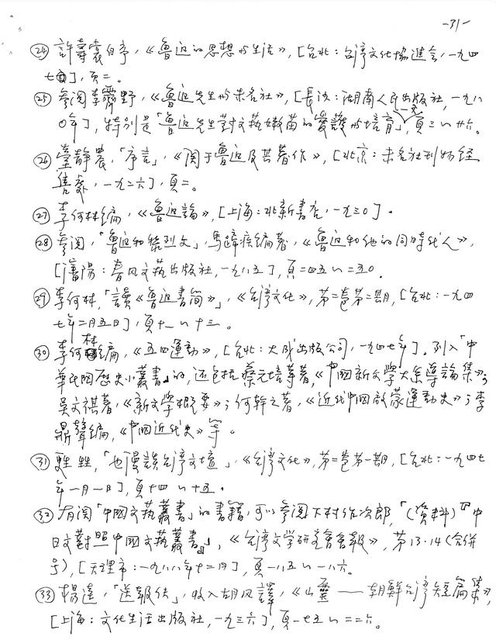 -31-
㉔ 許壽裳自序,《魯迅的思想與生活》,[台北:台灣文化協進會,一九四
七],頁二。
㉕ 參閱李霽野,《魯迅先生與未名社》,[長沙:湖南人民出版社,一九八
〇年],特別是「魯迅先生對文藝嫩苗的愛護與培育」,頁二~廿六。
㉖ 臺靜農,「序言」,《關于魯迅及其著作》,[北京:未名社刊物經
售處,一九二六],頁二。
㉗ 李何林編,《魯迅論》,[上海:北新書店,一九三〇]。
㉘ 參閱,「魯迅和嵇列夫」,馬蹄疾編著,《魯迅和他的同時代人》,
[瀋陽:春風文藝出版社,一九八五],頁二四五~二五〇。
㉙ 李何林,「讀《魯迅書簡》」,《台灣文化》,第二卷第二期,[台北:一九四
七年二月五日],頁十~十三。
㉚ 李何林編,《五四運動》,[台北:大成出版公司,一九四七年]。列入「中
華民國歷史小叢書」的,還包括蔡元培等著,《中國新文學大系導論集》;
吳文祺著,《新文學概要》;何幹之著,《近代中國啟蒙運動史》;李
鼎聲編,《中國近代史》等。
㉛ 甦甡,「也漫談台灣文壇」,《台灣文化》,第二卷第一期,[台北:一九四七
年一月一日],頁十四~十五。
㉜ 有關「中國文藝叢書」的書籍,可以參閱下村作次郎「(資料)『中
日文對照中國文藝叢書』」,《台灣文學研究會會報》,第13·14(合併
号),[天理市:一九八八年十二月],頁一八五~一八六。
㉝ 楊逵,「送報伕」,收入胡風譯,《山靈——朝鮮台灣短篇集》,
[上海:文化生活出版社,一九三六],頁一七五~二二六。